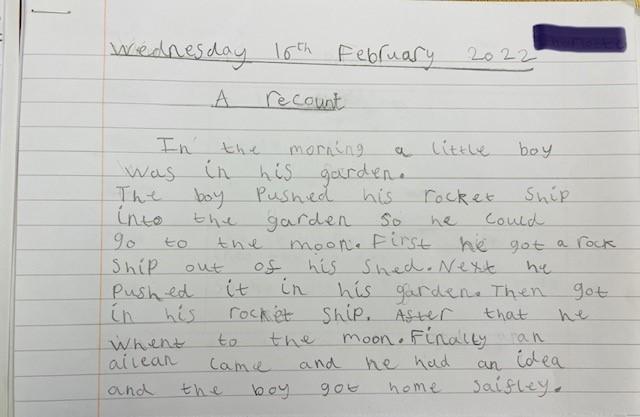 Wednesday 16th February 2022
A recount
In the morning a little boy
was in his garden.
The boy Pushed his rocket Ship
into the garden so he could
go to the moon. First he got a rock
Ship out of his shed. Next he
Pushed it in his garden. Then got
in his rocket Ship. After that he
whent to the moon. Finally an
ailean came and he had an idea
and the boy got home saifley.